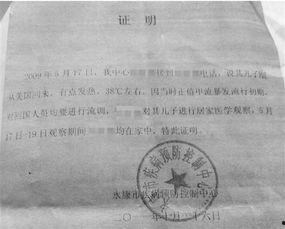 证 明
2009年5月17日，我中心 接到 电话，说其儿子刚
从美国回来，有点发热，38℃左右。因当时正值甲流暴发流行初期，
对回国人员均要进行流调， 对其儿子进行居家医学观察，5月
17日-19日观察期间 均在家中，特此证明。
永康市疾病预防控制中心
二〇一 年十 月二十六日